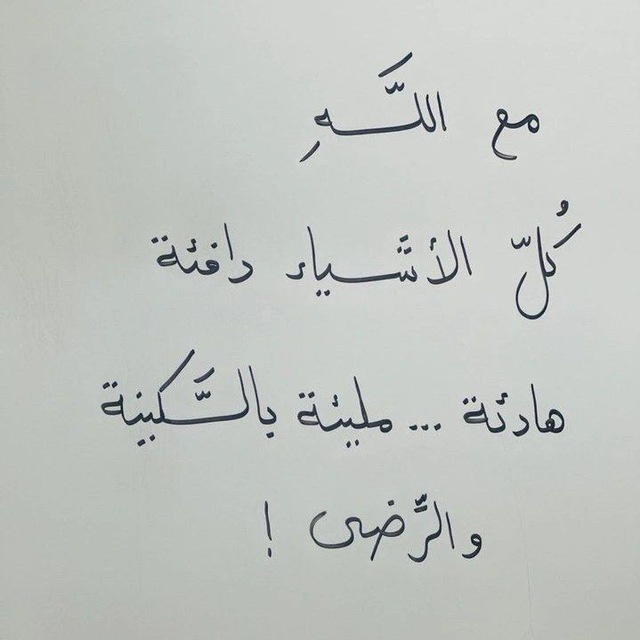 مع اللَّـهِ
كُلّ الأشَـياء دافئة
هادئة ... مليئة بالسَّكينة
والرِّضى !